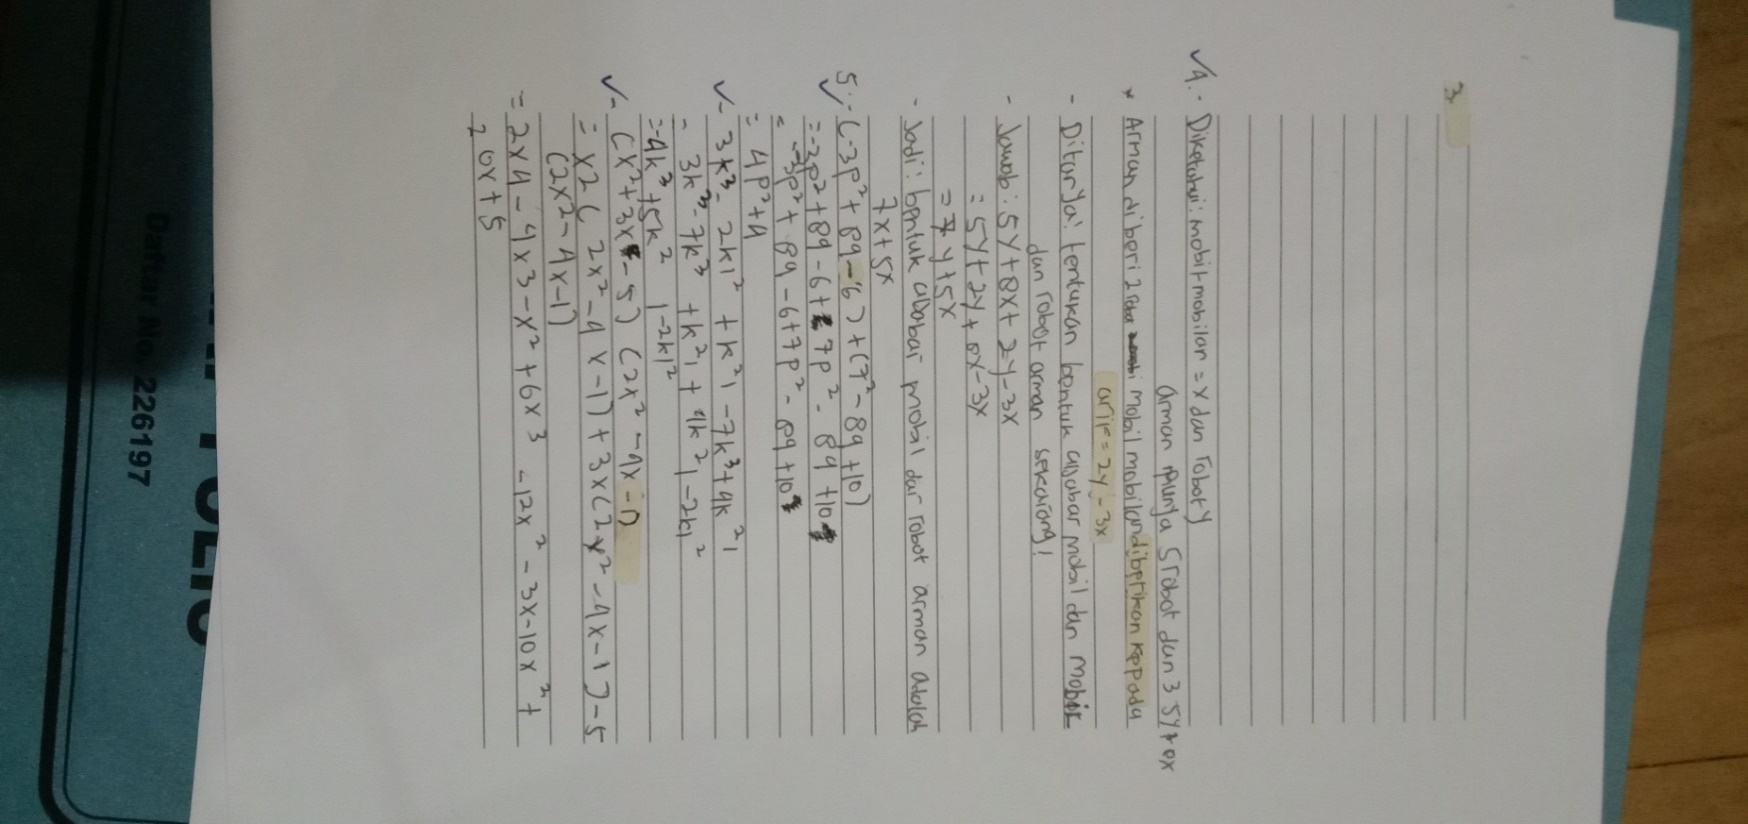 3
4. - Diketahui : mobil+mobilan = x dan robot y
Arman punya 5 robot dan 3 5y+8x
* Arman diberi 2 robot mobil mobilan diberikan kepada
arif = 2y - 3x
- Ditanya : tentukan bentuk aljabar mobil dan mobil
dan robot arman sekarang!
- Jawab : 5y + 8x + 2y - 3x
= 5y + 2y + 8x - 3x
= 7y + 5x
- Jadi : bentuk aljabar mobil dar robot arman adalah
7x + 5x
5. - (-3p² + 8q - 6) + (7² - 8q + 10)
= -3p² + 8q - 6 + 7p² - 8q + 10
= -3p² + 8q - 6 + 7p² - 8q + 10
= 4p² + 4
- 3k³ - 2kl² + k²l - 7k³ + 4k²l
= 3k³ - 7k³ + k²l + 4k²l - 2kl²
= -4k³ + 5k²l - 2kl²
- (x² + 3x - 5) (2x² - 4x - 1)
= x2 ( 2x² - 4x - 1) + 3x (2x² - 4x - 1) - 5
(2x2 - 4x - 1)
= 2x4 - 4x3 - x² + 6x3 - 12x² - 3x - 10x² +
20x + 5
Daftar No. 226197